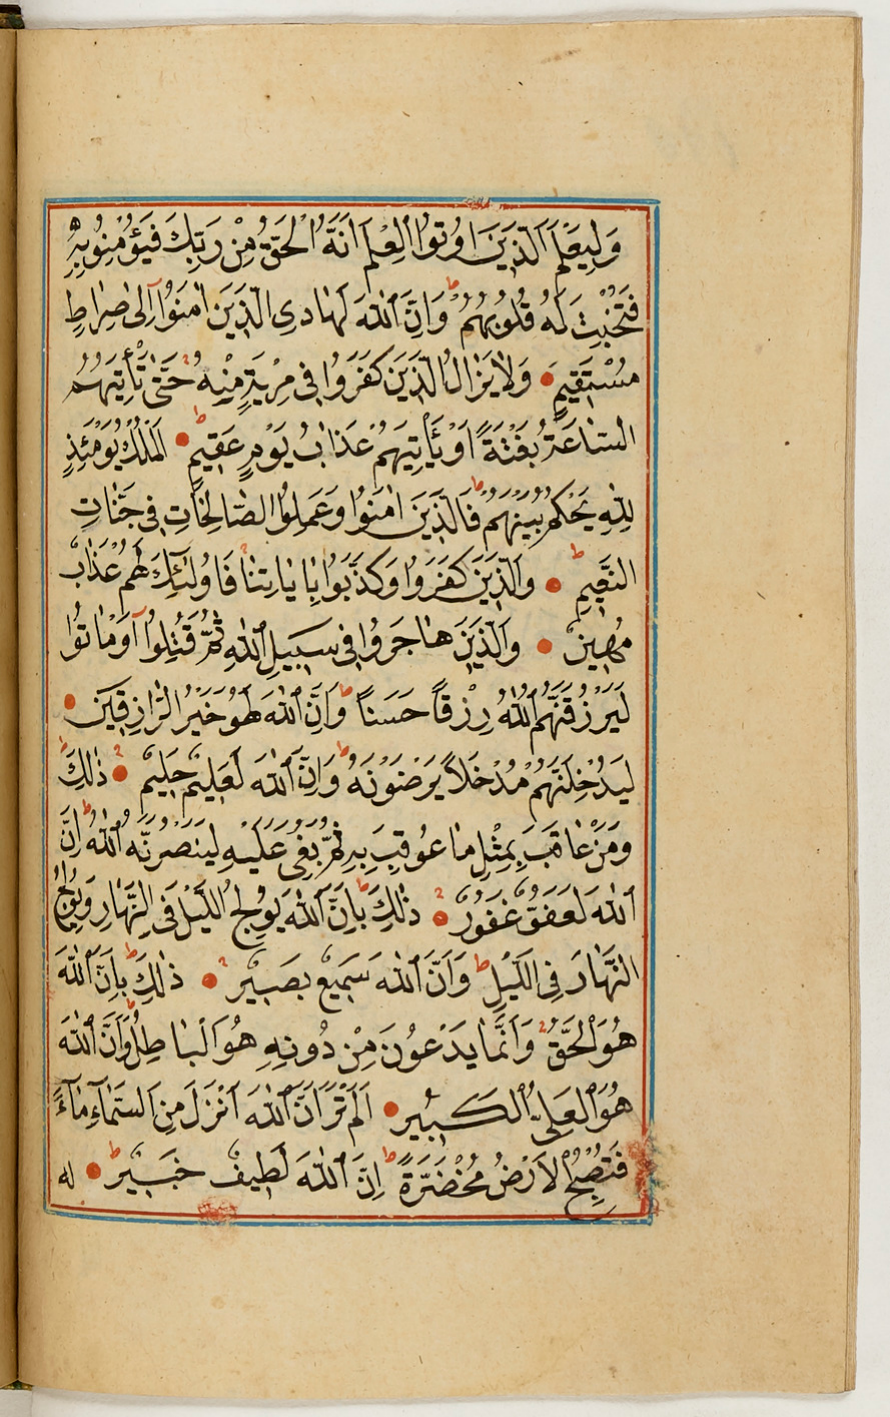 وَلِيَعْلَمَ الَّذِينَ اُوتُوا الْعِلْمَ اَنَّهُ الْحَقُّ مِنْ رَبِّكَ فَيُؤْمِنُوا بِهِ
فَتُخْبِتَ لَهُ قُلُوبُهُمْ ط وَاِنَّ اللهَ لَهَادِى الَّذِينَ اٰمَنُوا اِلٰى صِرَاطٍ
مُسْتَقِيمٍ وَلَا يَزَالُ الَّذِينَ كَفَرُوا فِى مِرْيَةٍ مِنْهُ حَتّٰى تَأْتِيَهُمُ
السَّاعَةُ بَغْتَةً اَوْ يَأْتِيَهُمْ عَذَابُ يَوْمٍ عَقِيمٍ ط اَلْمُلْكُ يَوْمَئِذٍ
لِلّٰهِ يَحْكُمُ بَيْنَهُمْ ط فَالَّذِينَ اٰمَنُوا وَعَمِلُوا الصَّالِحَاتِ فِى جَنَّاتِ
النَّعِيمِ ط وَالَّذِينَ كَفَرُوا وَكَذَّبُوا بِاٰيَاتِنَا فَاُولٰئِكَ لَهُمْ عَذَابٌ
مُهِينٌ وَالَّذِينَ هَاجَرُوا فِى سَبِيلِ اللهِ ثُمَّ قُتِلُوا اَوْ مَاتُوا
لَيَرْزُقَنَّهُمُ اللهُ رِزْقاً حَسَناً ط وَاِنَّ اللهَ لَهُوَ خَيْرُ الرَّازِقِينَ
لَيُدْخِلَنَّهُمْ مُدْخَلاً يَرْضَوْنَهُ ط وَاِنَّ اللهَ لَعَلِيمٌ حَلِيمٌ ذٰلِكَ ط
وَمَنْ عَاقَبَ بِمِثْلِ مَا عُوقِبَ بِهِ ثُمَّ بُغِىَ عَلَيْهِ لَيَنْصُرَنَّهُ اللهُ ط اِنَّ
اللهَ لَعَفُوٌّ غَفُورٌ ذٰلِكَ بِاَنَّ اللهَ يُولِجُ اللَّيْلَ فِى النَّهَارِ وَيُولِجُ
النَّهَارَ فِى اللَّيْلِ ط وَاَنَّ اللهَ سَمِيعٌ بَصِيرٌ ذٰلِكَ بِاَنَّ اللهَ
هُوَ الْحَقُّ وَاَنَّ مَا يَدْعُونَ مِنْ دُونِهِ هُوَ الْبَاطِلُ وَاَنَّ اللهَ
هُوَ الْعَلِىُّ الْكَبِيرُ اَلَمْ تَرَ اَنَّ اللهَ اَنْزَلَ مِنَ السَّمَاءِ مَاءً
فَتُصْبِحُ الْاَرْضُ مُخْضَرَّةً ط اِنَّ اللهَ لَطِيفٌ خَبِيرٌ ط له